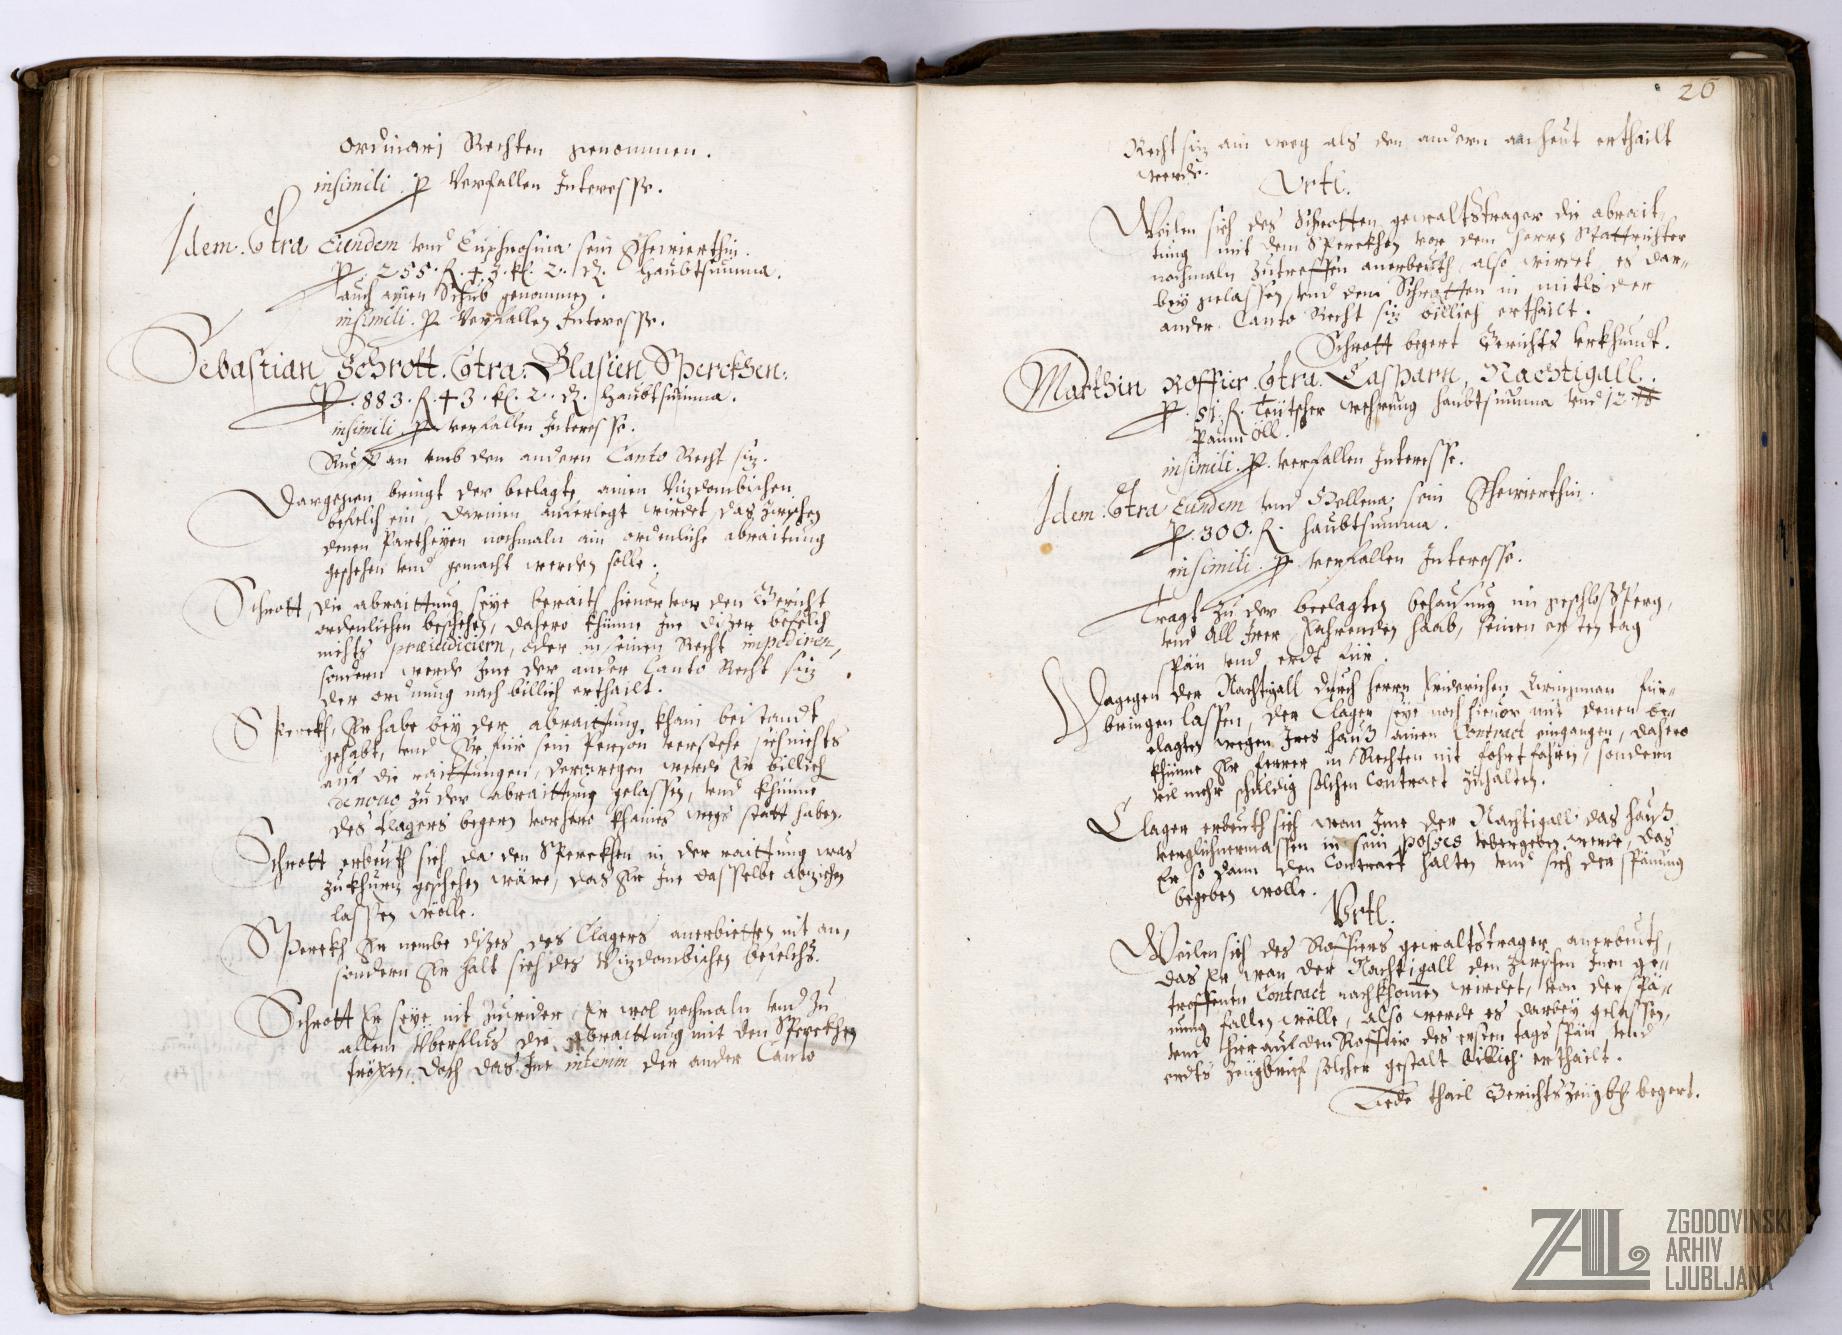 ordinarj Rechten genommen.
insimili. p. Verfallen Interesse.
Idem. Ctra Eundem vnd Euphrosina sein Ehewierthin.
p. 255. fl. 43. kr. 2. d. Haubtsumma.
auch ainen Schub genommen.
insimili. p. Verfallen Interesse.
Sebastian Schrott. Ctra. Blasien Sperekhen.
p. 883. fl. 43. kr. 2. d. Haubtsumma.
insimili. p. verfallen Interesse.
Rueft an vmb den andern Canto Recht suz.
Dargegen bringt der beclagte ainen Vizdombischen
befelch ein, darinnen auferlegt wirdet, das zwischen
denen Partheyen nochmaln ain ordenliche abraitung
geschehen vnd gemacht werden solle.
Schrott, die abraittung seye beraith hieuor vor den Gericht
ordenlichen beschehen, dahero khünne Ime diser befelch
nichts præiudiciern, oder in seinen Recht impediren,
sondern werde Ime der ander Canto Recht suz
der ordnung nach billich erthailt.
Sperekh, Er habe bey der abraittung khain beistandt
gehabt, vnd Er für sein Person verstehe sich nichts
auf die raittungen, derwegen werde Er billich
de nouo zu der abraittung gelassen, vnd khünne
des Clagers begern vorhero khaines wegs statt haben.
Schrott erbeuth sich da den Sperekhen in der raittung was
zu khurz geschehen wäre, das Er Ime dasselbe abziehen
lassen wölle.
Sperekh Er nembe dises des Clagers anerbietten nit an,
sondern Er halt sich des Vizdombischen befelchs.
Schrott Er seye nit zuwider, Er wol nochmaln vnd zu
allem Vberflus die abraittung mit den Sperekhen
treffen, doch das Ime interim der ander Canto
26
Recht suz ain weg als den andern an heut erthailt
werde.
Vrtl.
Weilen sich des Schrotten gewaltstrager die abrait-
tung mit dem Sperekhen vor dem herrn Stattrichter
nochmaln zutreffen anerbeuth, also wirdet es dar-
bey gelassen, vnd dem Schrotten in mitls der
ander Canto Recht suz billich erthailt.
Schrott begert Gerichts Vrkhundt.
Marthin Roffier. Ctra. Casparn Nachtigall.
p. 51. fl. Teütscher wehrung haubtsumma vnd 12 lb
Paum Öll.
insimili. p. verfallen Interesse.
Idem. Ctra Eundem vnd Hellena sein Ehewierthin.
p. 300. fl. haubtsumma.
insimili. p. verfallen Interesse.
Tregt zu der beclagten behausung im geschloßperg,
vnd all Irer fahrenden haab, seinen ersten tag
spän vnd erdt für.
Dagegen der Nachtigall durch herrn Friderichen für-
bringen lassen, der Clager seye noch hieuor mit denen be-
clagten wegen Ires hauß ainen Contract eingangen, dahero
khünne Er ferrer in Rechten nit fohrtfahren, sondern
vil mehr schuldig solchen Contract zuhalten.
Clager erbeuth sich, wan Ime der Nachtigall das hauß
verglichnermassen in sein posses vbergeben werde, das
Er so dann den Contract halten vnd sich der spänung
begeben wolle.
Vrtl.
Weilen sich des Roffiers gewaltstrager anerbeuth,
das Er wan der Nachtigall den zwischen Inen ge-
troffenen Contract nachkhomen wirdet, von der spä-
nung fallen wölle, also werde es darbey gelassen,
vnd hierauf den Roffier des ersten tags spän vnd
erdts zeügbrief solcher gestalt billich erthailt.
Jede thail Gerichts zeügbr. begert.
ZAL ZGODOVINSKI
ARHIV
LJUBLJANA